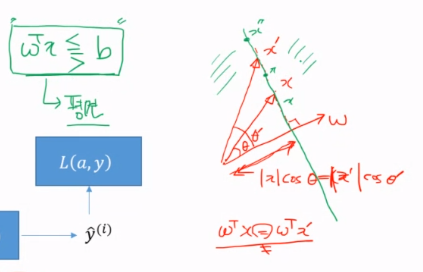 ωᵀx ≤ > b
↳ 평면
L(a, y)
ŷ⁽ⁱ⁾
x''
x'
x
x
θ θ'
ω
|x|cos θ = |x'|cos θ'
ωᵀx = ωᵀx'